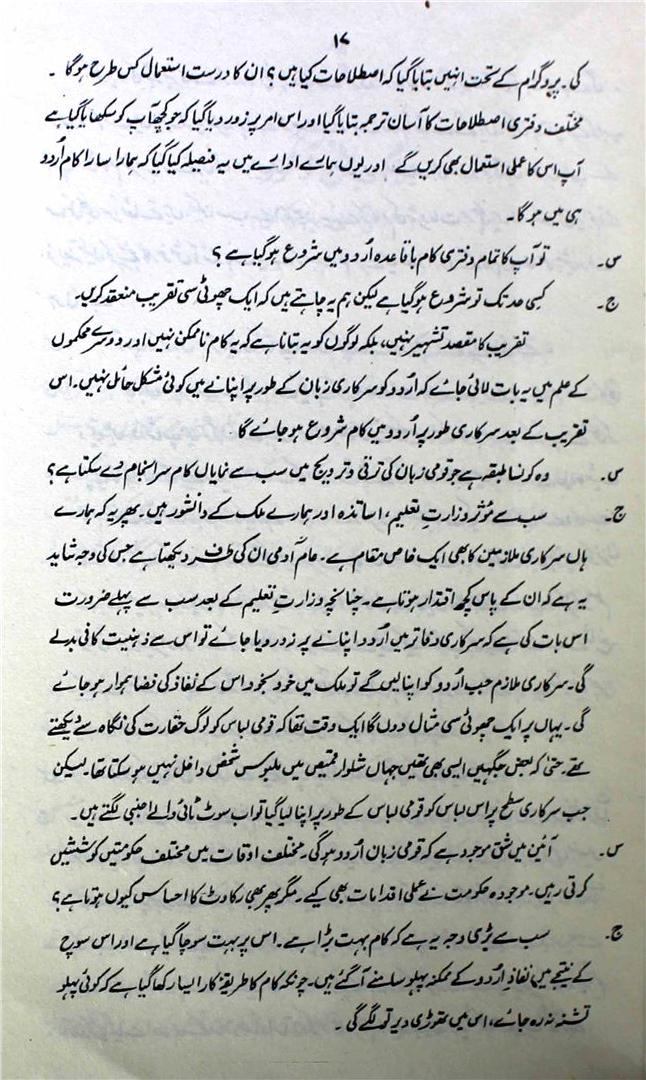 ۱۷
کی۔ پروگرام کے تحت انہیں بتایا گیا کہ اصطلاحات کیا ہیں؟ ان کا درست استعمال کس طرح ہوگا ۔
مختلف دفتری اصطلاحات کا آسان ترجمہ بتایا گیا اور اس امر پر زور دیا گیا کہ جو کچھ آپ کو سکھایا گیا ہے
آپ اس کا عملی استعمال بھی کریں گے اور یوں ہمارے ادارے میں یہ فیصلہ کیا گیا کہ ہمارا سارا کام اُردو
ہی میں ہوگا۔
س۔ تو آپ کا تمام دفتری کام باقاعدہ اُردو میں شروع ہوگیا ہے ؟
ج۔ کسی حد تک تو شروع ہوگیا ہے لیکن ہم یہ چاہتے ہیں کہ ایک چھوٹی سی تقریب منعقد کریں۔
تقریب کا مقصد تشہیر نہیں، بلکہ لوگوں کو یہ بتانا ہے کہ یہ کام ناممکن نہیں اور دوسرے محکموں
کے علم میں یہ بات لائی جائے کہ اُردو کو سرکاری زبان کے طور پر اپنانے میں کوئی مشکل حائل نہیں۔ اس
تقریب کے بعد سرکاری طور پر اُردو میں کام شروع ہو جائے گا
س۔ وہ کونسا طبقہ ہے جو قومی زبان کی ترقی و ترویج میں سب سے نمایاں کام سرانجام دے سکتا ہے؟
ج۔ سب سے مؤثر وزارتِ تعلیم، اساتذہ اور ہمارے ملک کے دانشور ہیں۔ پھر یہ کہ ہمارے
ہاں سرکاری ملازمین کا بھی ایک خاص مقام ہے۔ عام آدمی ان کی طرف دیکھتا ہے جس کی وجہ شاید
یہ ہے کہ ان کے پاس کچھ اقتدار ہوتا ہے۔ چنانچہ وزارتِ تعلیم کے بعد سب سے پہلے ضرورت
اس بات کی ہے کہ سرکاری دفاتر میں اُردو اپنانے پر زور دیا جائے تو اس سے ذہنیت کافی بدلے
گی۔ سرکاری ملازم جب اُردو کو اپنا لیں گے تو ملک میں خود بخود اس کے نفاذ کی فضا ہموار ہو جائے
گی۔ یہاں پر ایک چھوٹی سی مثال دوں گا ایک وقت تھا کہ قومی لباس کو لوگ حقارت کی نگاہ سے دیکھتے
تھے۔ حتیٰ کہ بعض جگہیں ایسی بھی تھیں جہاں شلوار قمیص میں ملبوس شخص داخل نہیں ہو سکتا تھا۔ لیکن
جب سرکاری سطح پر اس لباس کو قومی لباس کے طور پر اپنا لیا گیا تو اب سوٹ ٹائی والے اجنبی لگتے ہیں۔
س۔ آئین میں شق موجود ہے کہ قومی زبان اُردو ہوگی۔ مختلف اوقات میں مختلف حکومتیں کوششیں
کرتی رہیں۔ موجودہ حکومت نے عملی اقدامات بھی کیے۔ مگر پھر بھی رکاوٹ کا احساس کیوں ہوتا ہے؟
ج۔ سب سے بڑی وجہ یہ ہے کہ کام بہت بڑا ہے۔ اس پر بہت سوچا گیا ہے اور اس سوچ
کے نتیجے میں نفاذِ اُردو کے ممکنہ پہلو سامنے آگئے ہیں۔ چونکہ کام کا طریقۂ کار ایسا رکھا گیا ہے کہ کوئی پہلو
تشنہ نہ رہ جائے، اس میں تھوڑی دیر تو لگے گی ۔